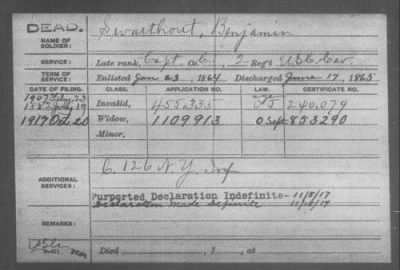 DEAD.
NAME OF SOLDIER: Swarthout, Benjamin
SERVICE: Late rank, Capt. Co. C, 2 Reg't U.S.C. Cav.
TERM OF SERVICE: Enlisted Jan 23, 1864 Discharged June 17, 1865
DATE OF FILING. CLASS. APPLICATION NO. LAW. CERTIFICATE NO.
1907
1882 July 19 Invalid, 455,335 240,079
1917 Oct 20 Widow, 1109913 853290
Minor,
ADDITIONAL SERVICES: C. 126 N.Y. Inf
Purported Declaration Indefinite- 11/5/17
Declaration Made Definite
REMARKS:
Died , 1 , at